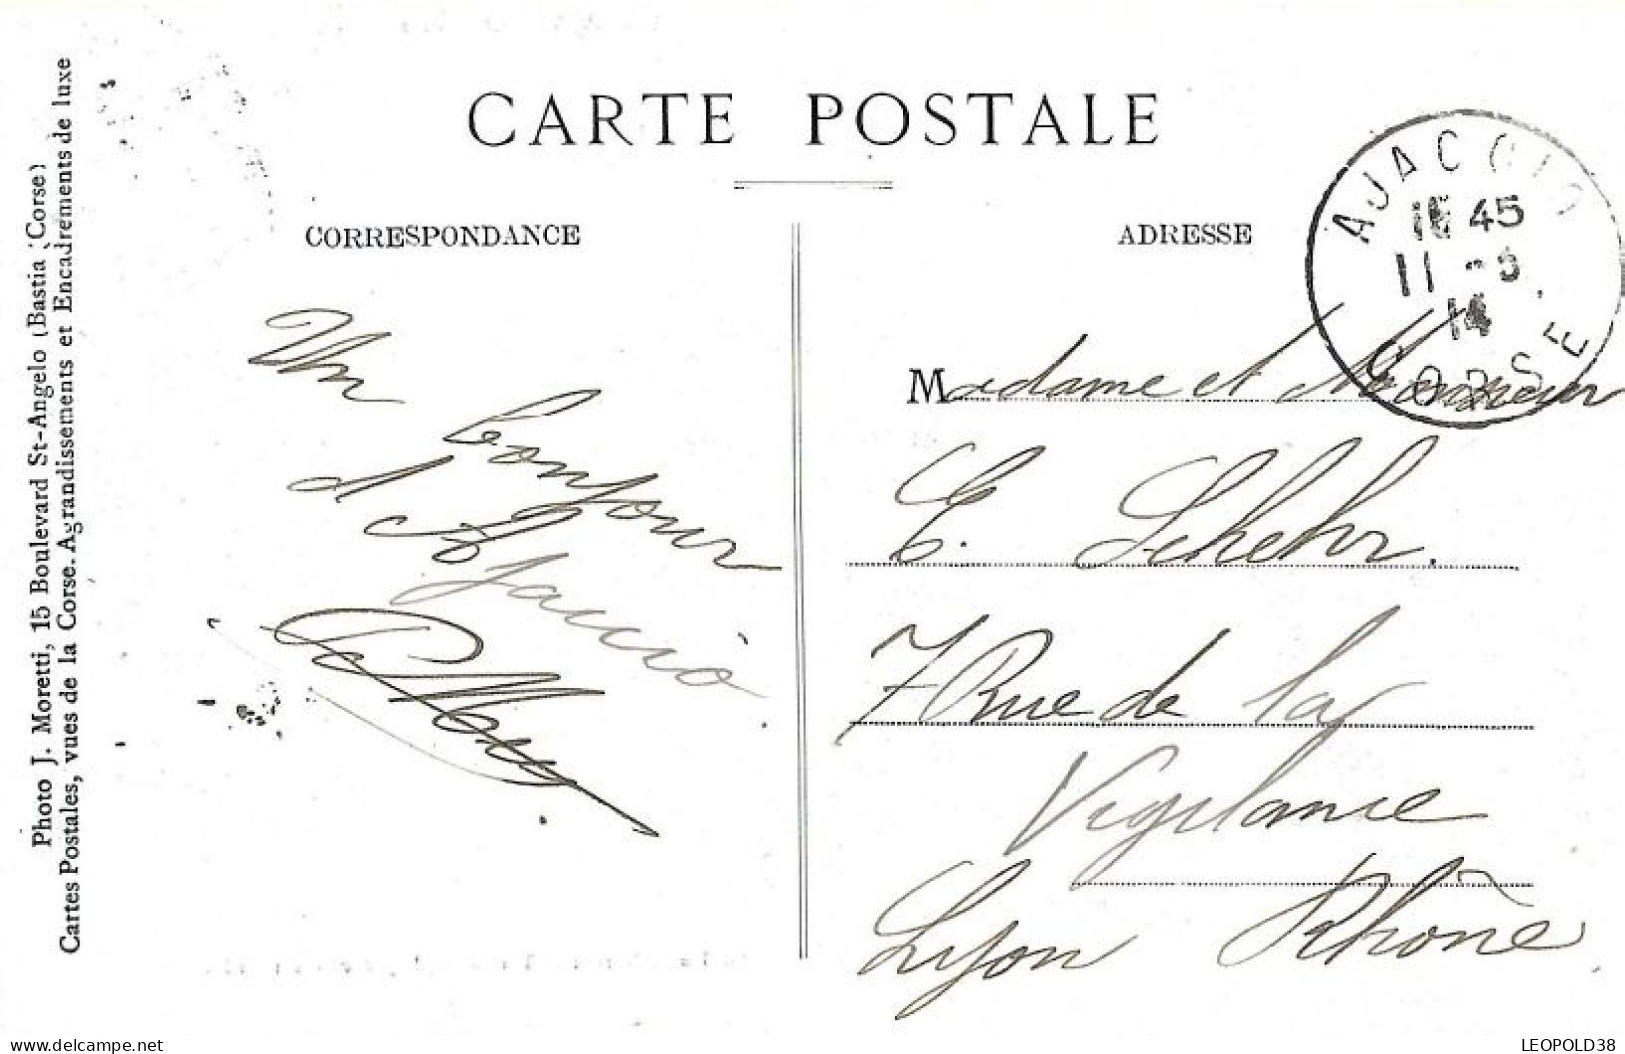 CARTE POSTALE
CORRESPONDANCE
ADRESSE
Photo J. Moretti, 15 Boulevard St-Angelo (Bastia Corse)
Cartes Postales, vues de la Corse. Agrandissements et Encadrements de luxe
AJACCIO
45
11
14
CORSE
Un
bonjour
d'A
jaccio
Madame et Monsieur
7 Rue de la
Vigilance
Lyon Rhône
www.delcampe.net
LEOPOLD38